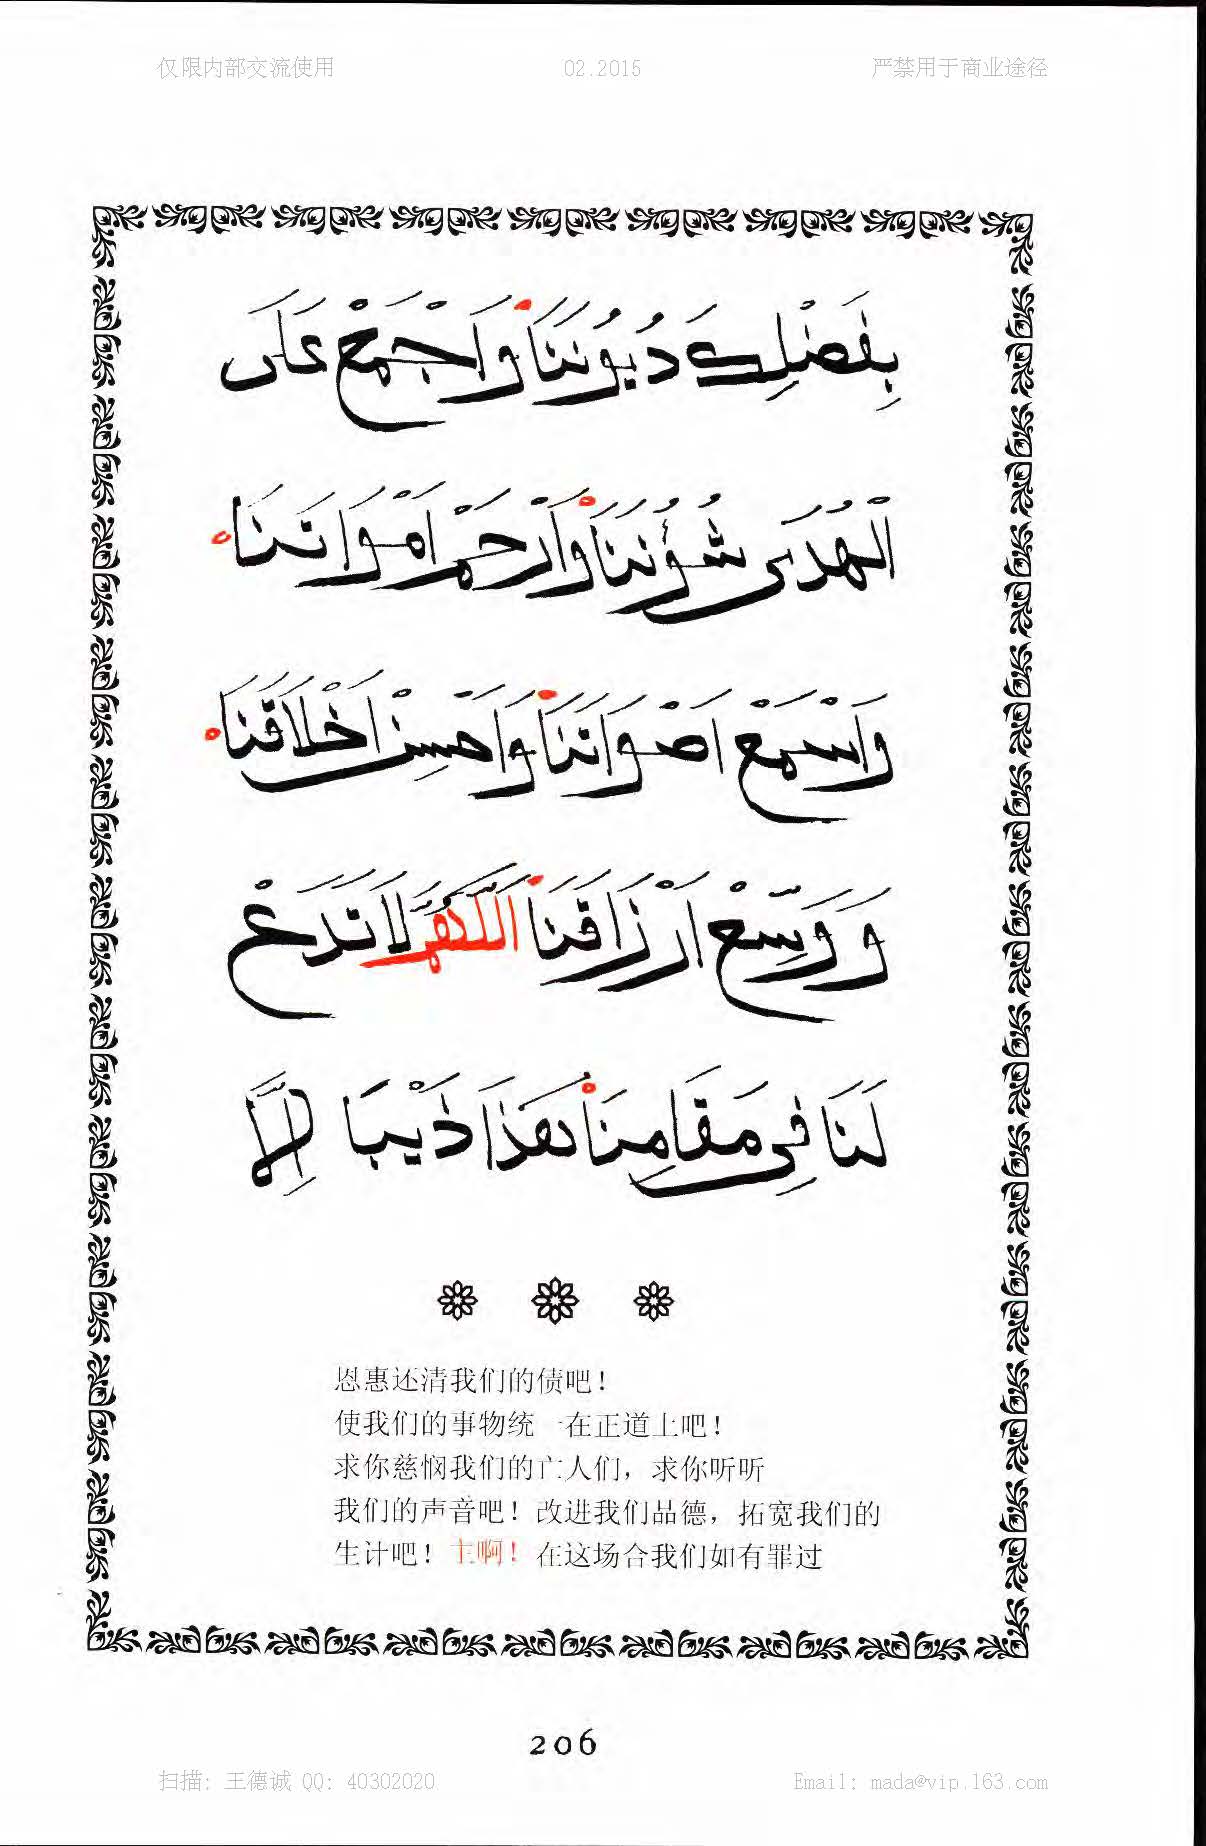 仅限内部交流使用 02.2015 严禁用于商业途径
بِفَضْلِكَ دُيُونَنَا وَاجْمَعْ عَلَى
الْهُدَى شُؤُنَنَا وَارْحَمْ اَمْوَاتَنَا
وَاسْمَعْ اَصْوَاتَنَا وَاحْسِنْ اَخْلَاقَنَا
وَ وَسِّعْ اَرْزَاقَنَا اَللَّهُمَّ لَا تَدَعْ
لَنَا فِى مَقَامِنَا هَذَا ذَنْبًا اِلَّا
恩惠还清我们的债吧！
使我们的事物统一在正道上吧！
求你慈悯我们的亡人们，求你听听
我们的声音吧！改进我们品德，拓宽我们的
生计吧！主啊！在这场合我们如有罪过
206
扫描: 王德诚 QQ: 40302020 Email: mada@vip.163.com